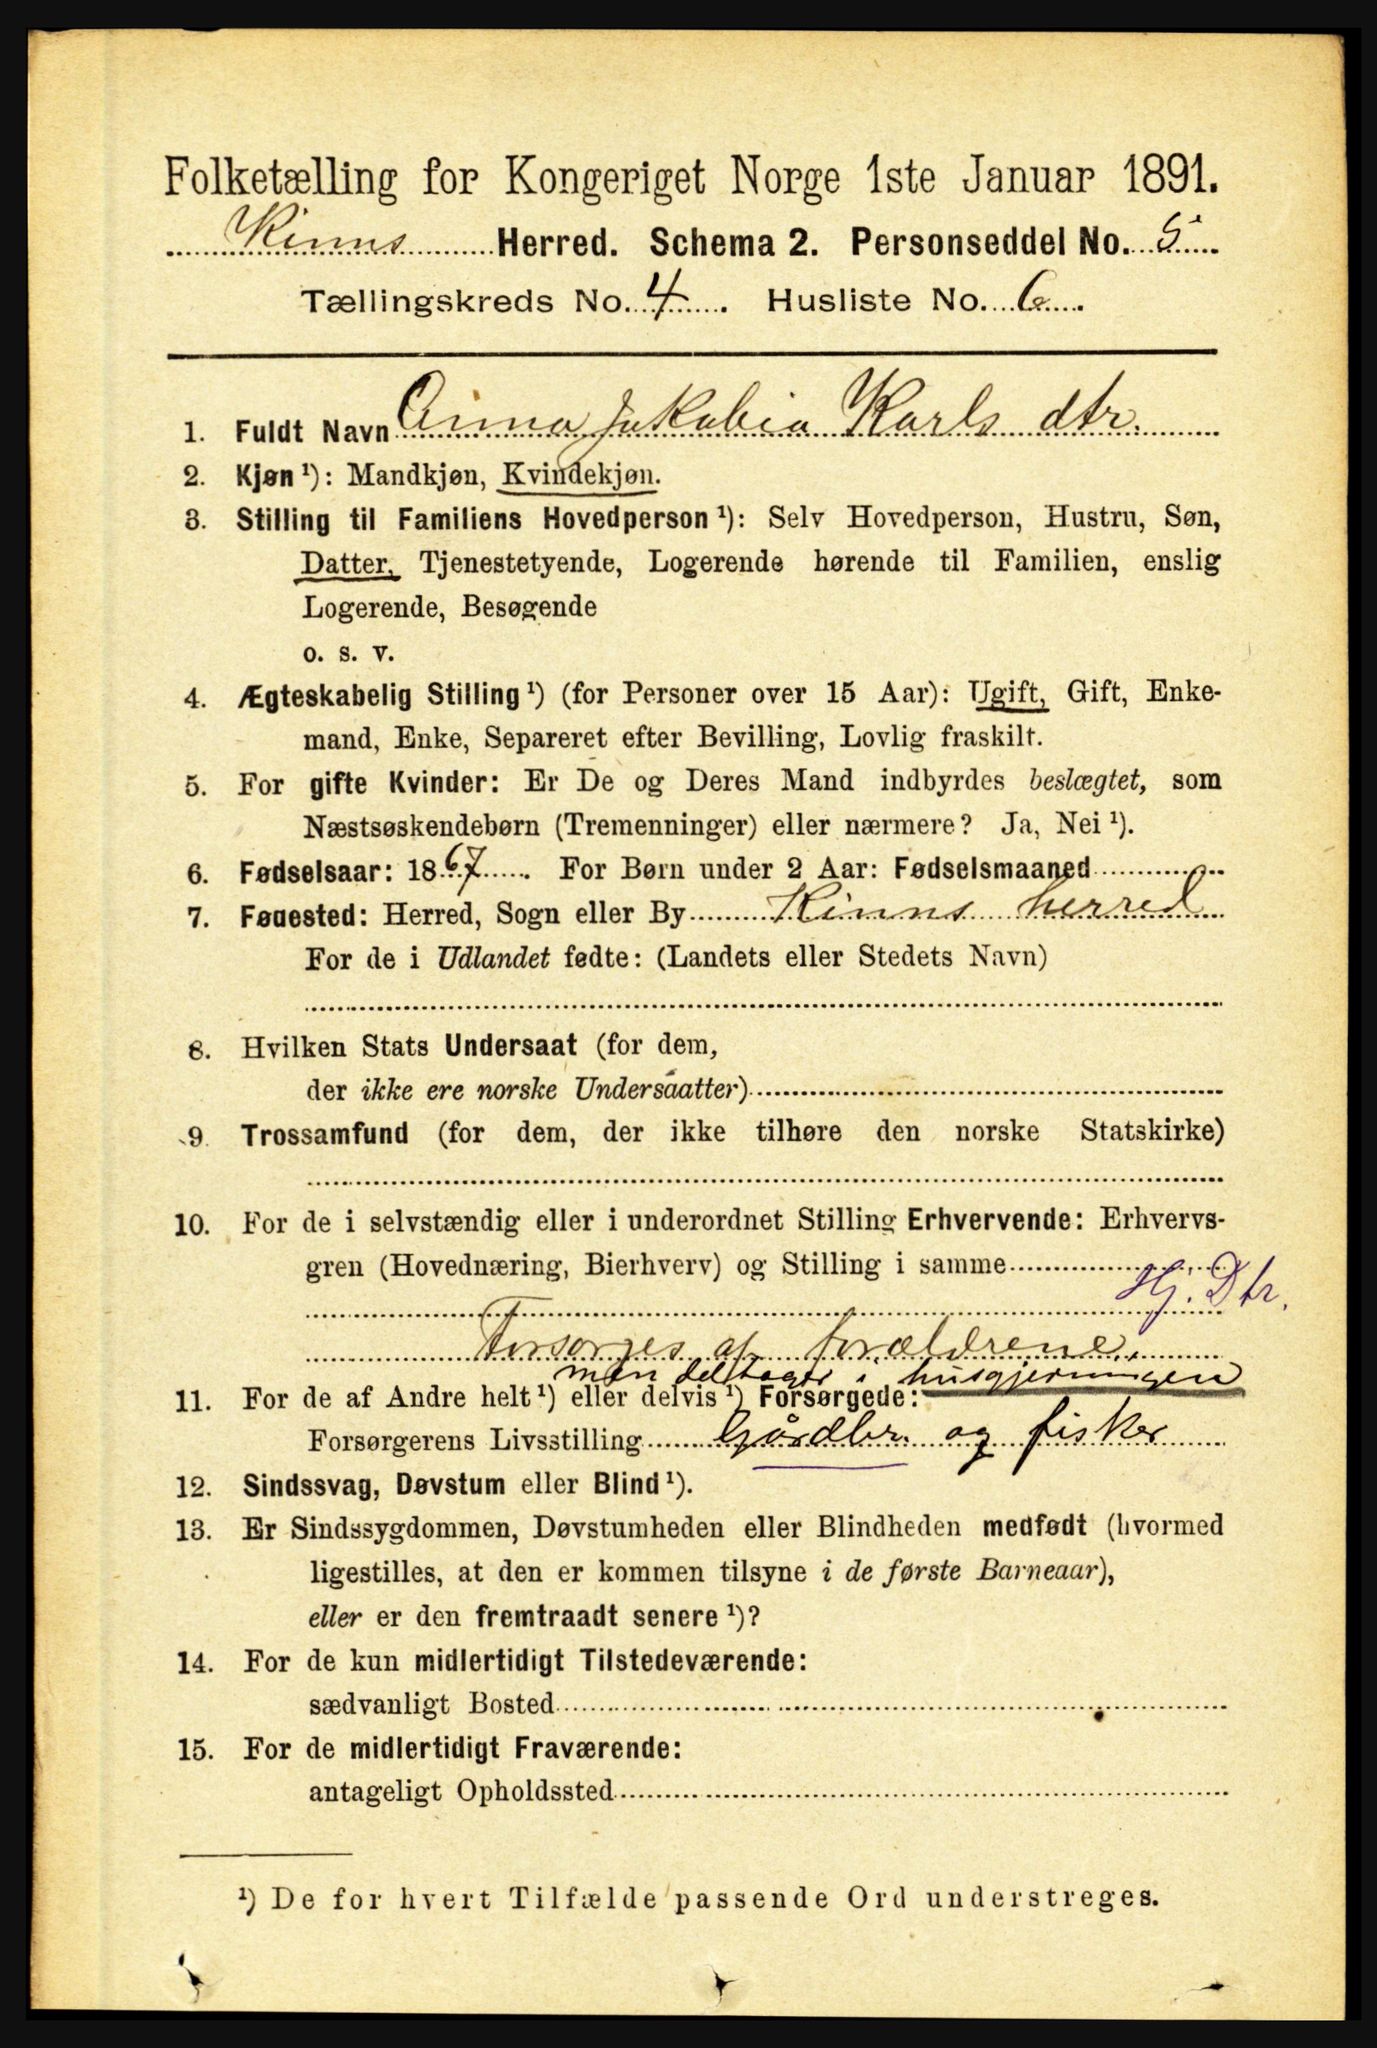 Folketælling for Kongeriget Norge 1ste Januar 1891.
Kinns Herred. Schema 2. Personseddel No. 5
Tællingskreds No. 4. Husliste No. 6.
1. Fuldt Navn Anna Jakobia Karls dtr.
2. Kjøn ¹): Mandkjøn, Kvindekjøn.
3. Stilling til Familiens Hovedperson ¹): Selv Hovedperson, Hustru, Søn,
Datter, Tjenestetyende, Logerende hørende til Familien, enslig
Logerende, Besøgende
o. s. v.
4. Ægteskabelig Stilling ¹) (for Personer over 15 Aar): Ugift, Gift, Enke-
mand, Enke, Separeret efter Bevilling, Lovlig fraskilt.
5. For gifte Kvinder: Er De og Deres Mand indbyrdes beslægtet, som
Næstsøskendebørn (Tremenninger) eller nærmere? Ja, Nei ¹).
6. Fødselsaar: 1867. For Børn under 2 Aar: Fødselsmaaned
7. Fødested: Herred, Sogn eller By Kinns herred
For de i Udlandet fødte: (Landets eller Stedets Navn)
8. Hvilken Stats Undersaat (for dem,
der ikke ere norske Undersaatter)
9. Trossamfund (for dem, der ikke tilhøre den norske Statskirke)
10. For de i selvstændig eller i underordnet Stilling Erhvervende: Erhvervs-
gren (Hovednæring, Bierhverv) og Stilling i samme
Hj. Dtr.
Forsørges af forældrene,
men deltager i husgjerningen
11. For de af Andre helt ¹) eller delvis ¹) Forsørgede:
Forsørgerens Livsstilling Gårdbr. og fisker
12. Sindssvag, Døvstum eller Blind ¹).
13. Er Sindssygdommen, Døvstumheden eller Blindheden medfødt (hvormed
ligestilles, at den er kommen tilsyne i de første Barneaar),
eller er den fremtraadt senere ¹)?
14. For de kun midlertidigt Tilstedeværende:
sædvanligt Bosted
15. For de midlertidigt Fraværende:
antageligt Opholdssted
¹) De for hvert Tilfælde passende Ord understreges.